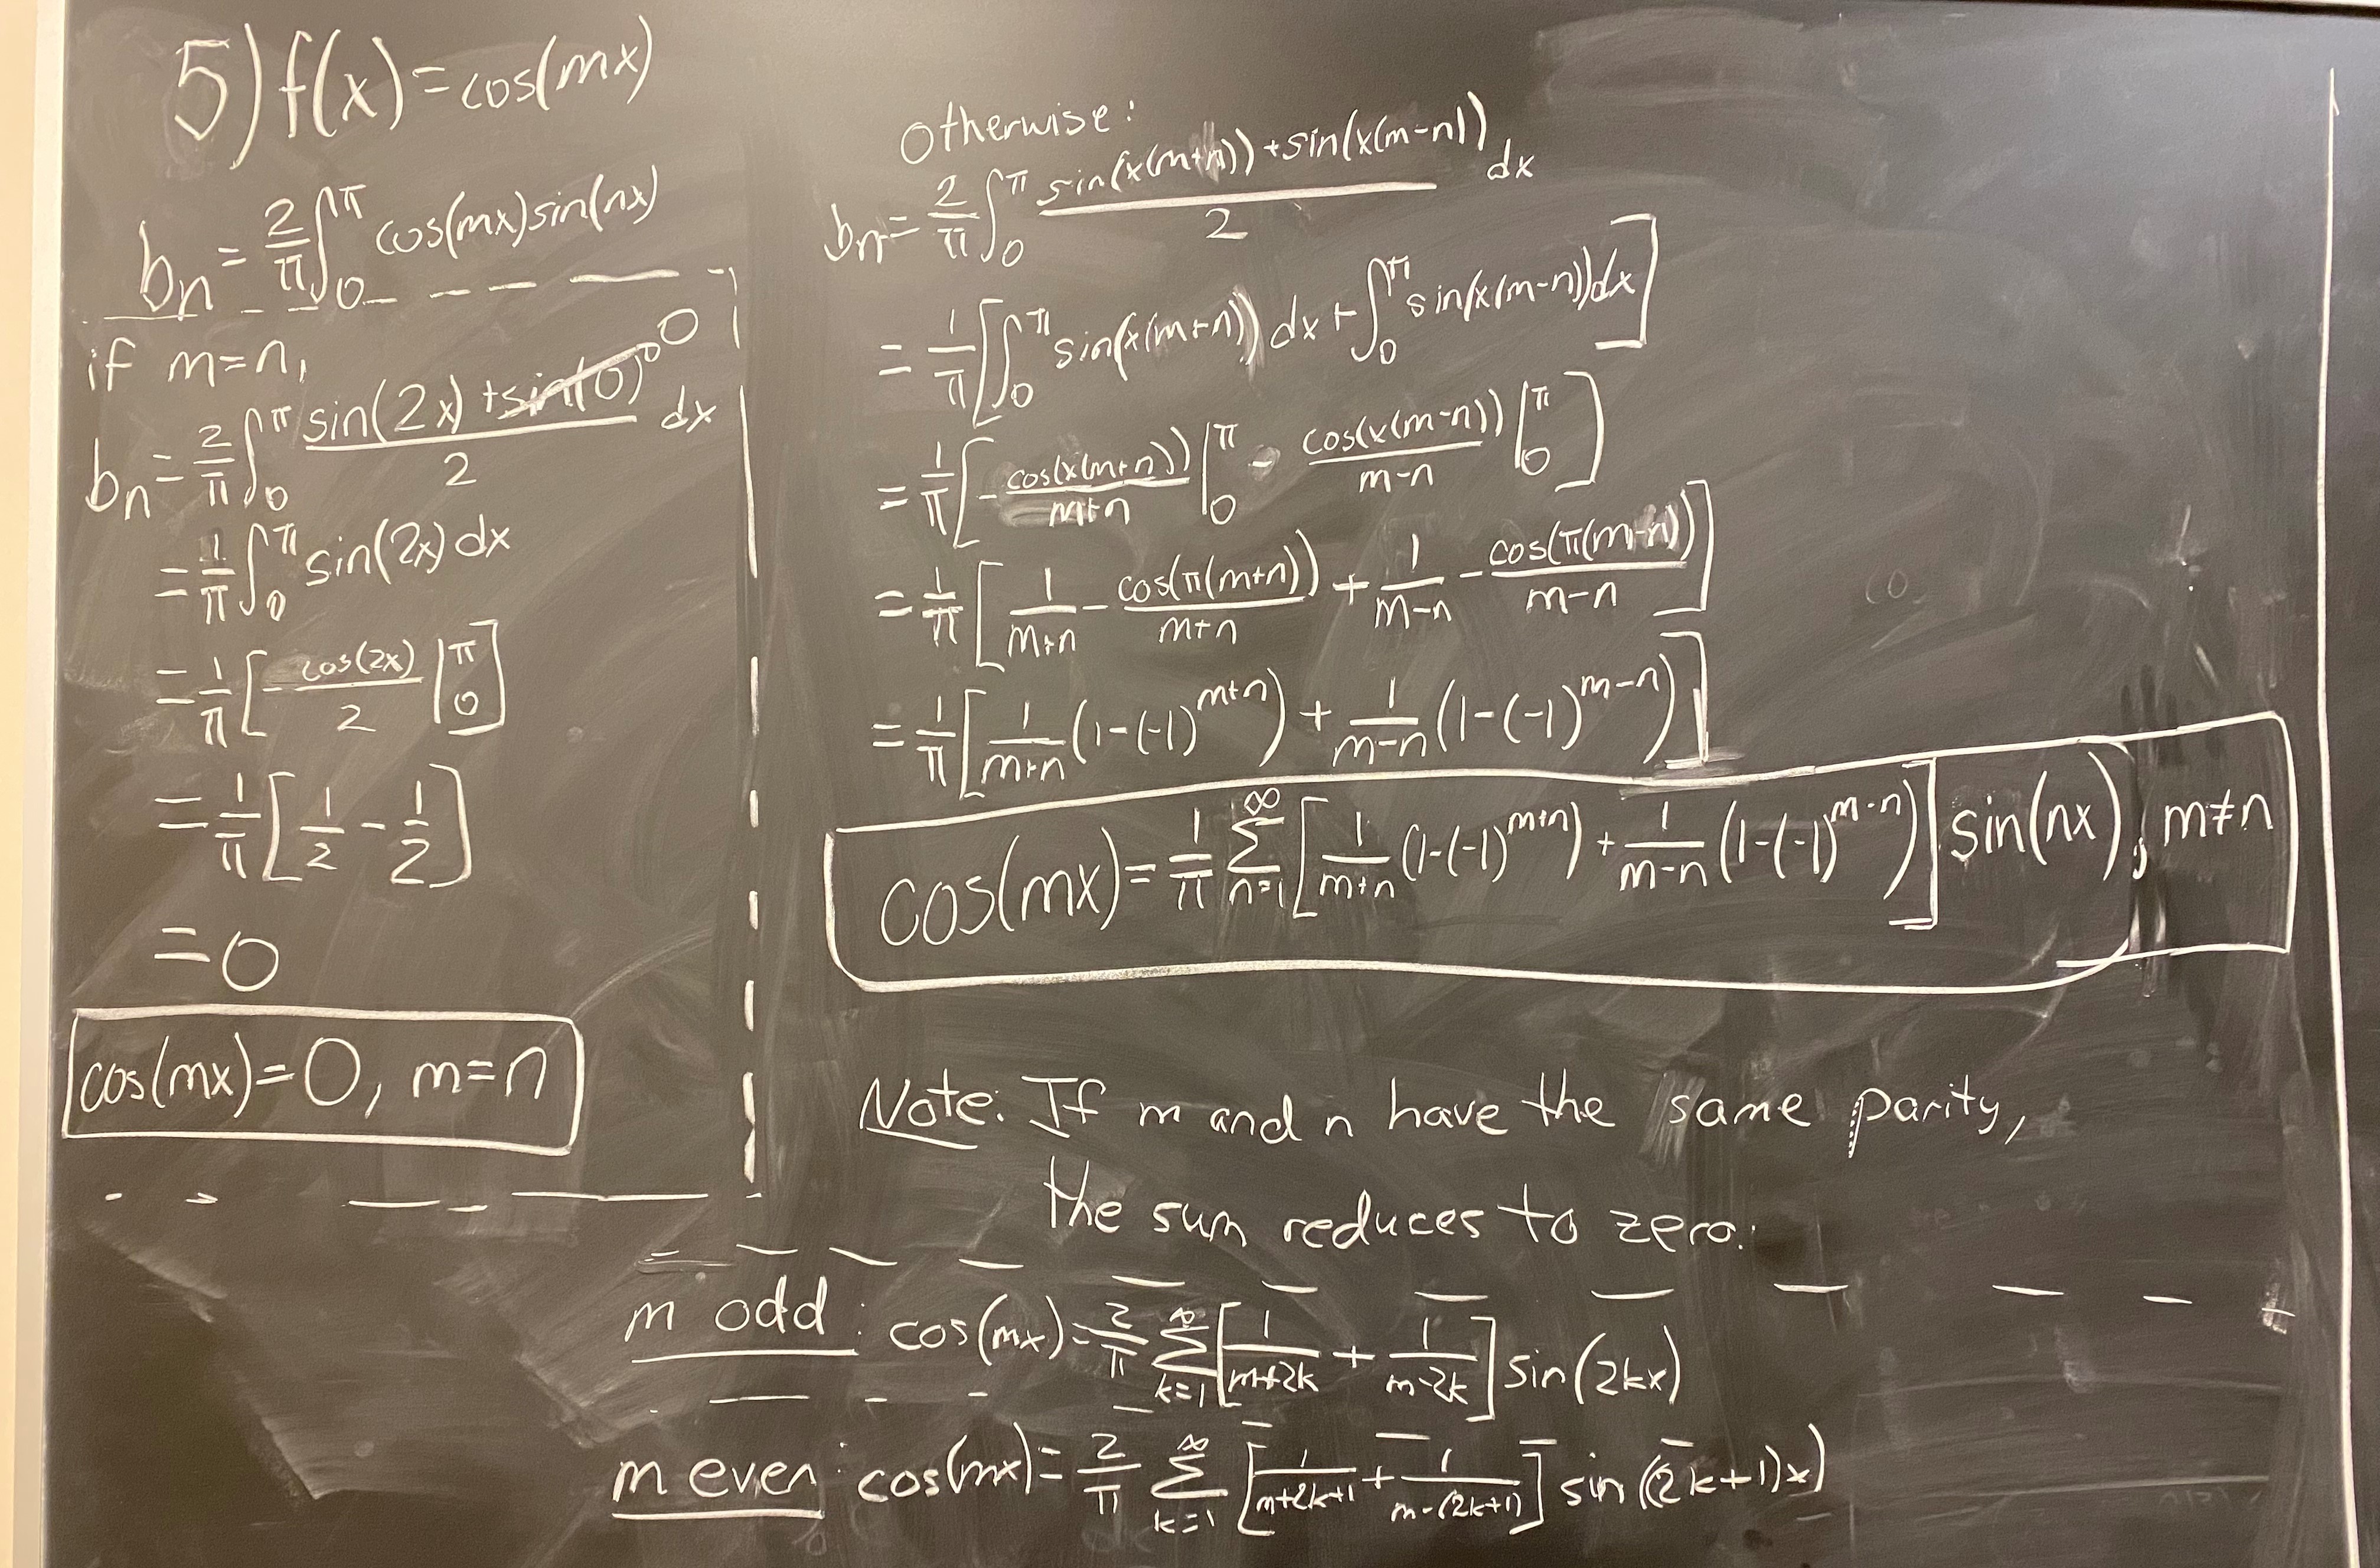 5) f(x) = cos(mx)
bn = 2/π ∫₀^π cos(mx)sin(nx)
if m=n,
bn = 2/π ∫₀^π (sin(2x) + sin(0))/2 dx
0
= 1/π ∫₀^π sin(2x) dx
= 1/π [-cos(2x)/2 |₀^π]
= 1/π [1/2 - 1/2]
= 0
cos(mx)=0, m=n
Otherwise:
bn = 2/π ∫₀^π (sin(x(m+n)) + sin(x(m-n)))/2 dx
= 1/π [∫₀^π sin(x(m+n)) dx + ∫₀^π sin(x(m-n)) dx]
= 1/π [-cos(x(m+n))/(m+n) |₀^π - cos(x(m-n))/(m-n) |₀^π]
= 1/π [1/(m+n) - cos(π(m+n))/(m+n) + 1/(m-n) - cos(π(m-n))/(m-n)]
= 1/π [1/(m+n) (1-(-1)^(m+n)) + 1/(m-n) (1-(-1)^(m-n))]
cos(mx) = 1/π Σ_{n=1}^∞ [1/(m+n) (1-(-1)^(m+n)) + 1/(m-n) (1-(-1)^(m-n))] sin(nx), m≠n
Note: If m and n have the same parity,
the sum reduces to zero.
m odd: cos(mx) = 2/π Σ_{k=1}^∞ [1/(m+2k) + 1/(m-2k)] sin(2kx)
m even: cos(mx) = 2/π Σ_{k=1}^∞ [1/(m+2k+1) + 1/(m-(2k+1))] sin((2k+1)x)